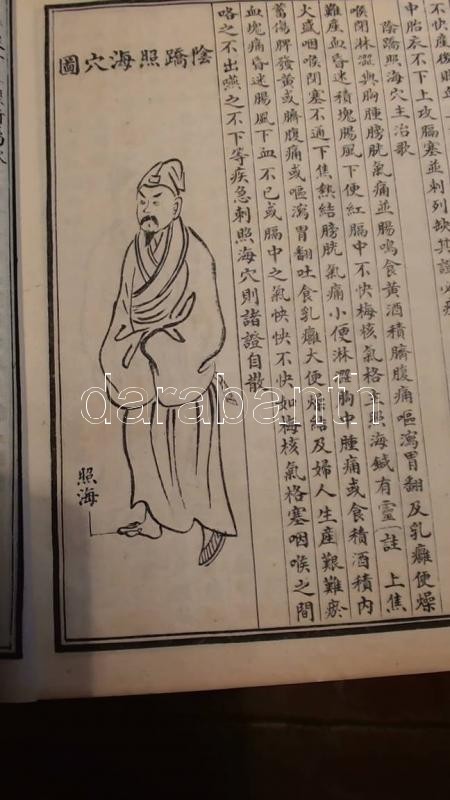 不快產後
中胎衣不下上攻膈塞並刺列缺其證必
陰蹻照海穴主治歌
喉閉淋澀與胸腫膀胱氣痛並腸鳴食黃酒積臍腹痛嘔瀉胃翻及乳癰便燥
難產血昏迷積塊腸風下便紅膈中不快梅核氣格主照海鍼有靈註上焦
火盛咽喉閉塞不通下焦熱結膀胱氣痛小便淋澀胸中腫痛或食積酒積內
蓄傷脾發黃或臍腹痛或嘔瀉胃翻吐食乳癰大便燥結及婦人生產艱難瘀
血塊痛昏迷腸風下血不已或膈中之氣怏怏不快如梅核氣格塞咽喉之間
咯之不出嚥之不下等疾急刺照海穴則諸證自散
陰蹻照海穴圖
照海
darabanth